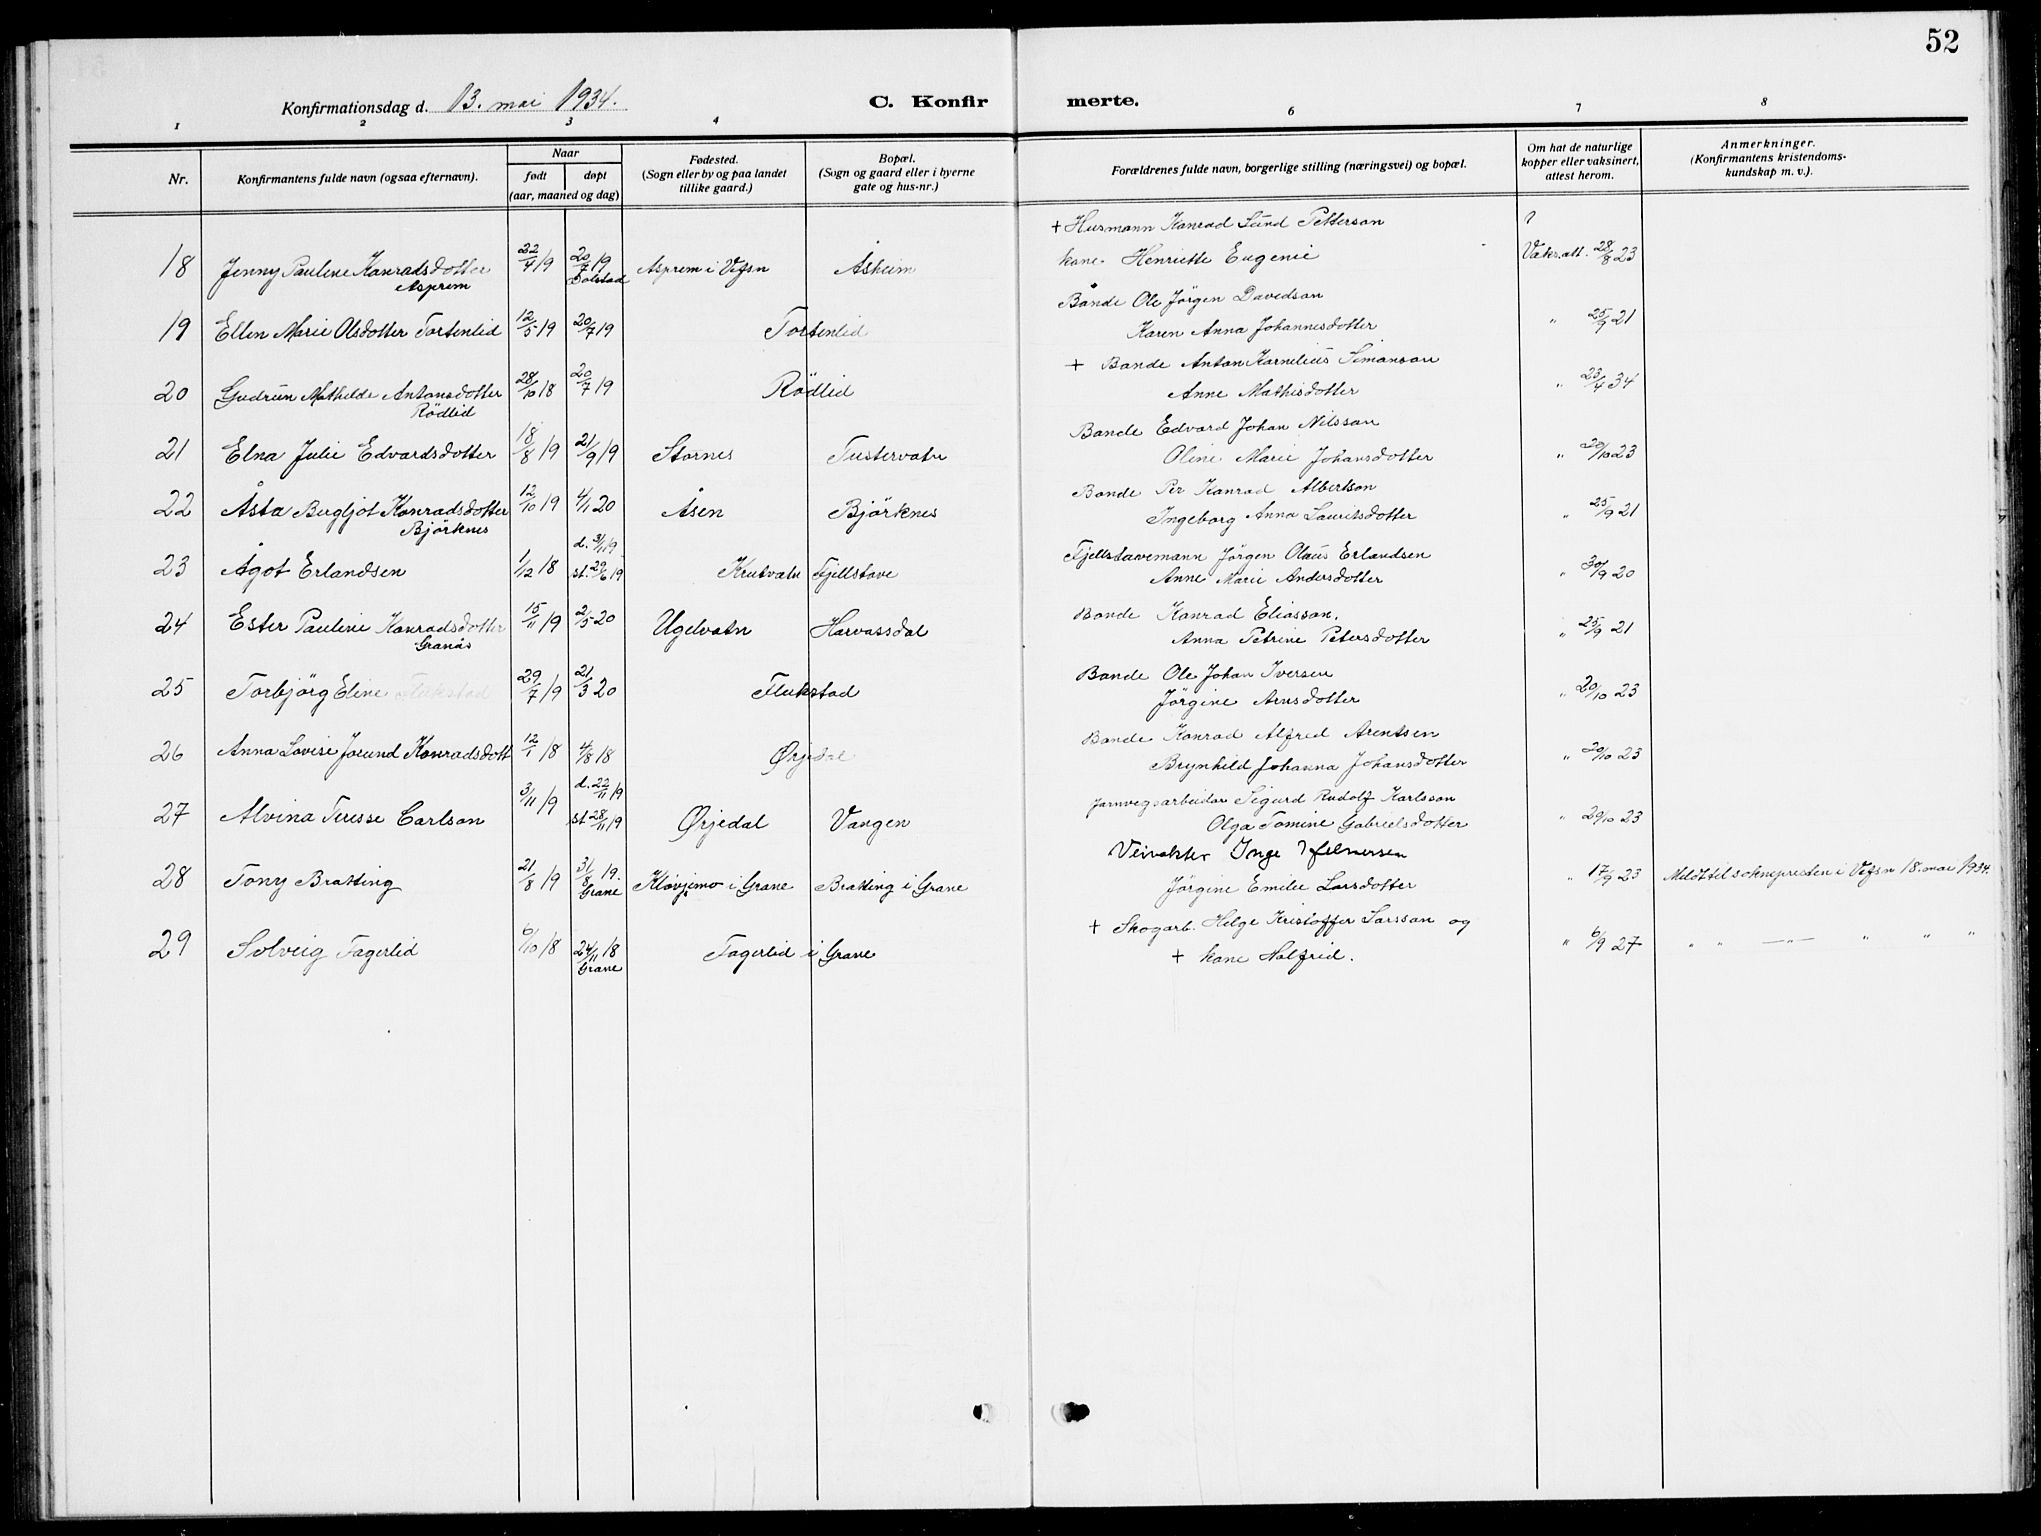 52
Konfirmationsdag d. 13. mai 1934. C. Konfir merte.
1 2 3 4 6 7 8
Nr. Konfirmantens fulde navn (ogsaa efternavn). Naar født døpt (aar, maaned og dag) Fødested. (Sogn eller by og paa landet tillike gaard.) Bopæl. (Sogn og gaard eller i byerne gate og hus-nr.) Forældrenes fulde navn, borgerlige stilling (næringsvei) og bopæl. Om hat de naturlige kopper eller vaksinert, attest herom. Anmerkninger. (Konfirmantens kristendoms-kundskap m. v.).
+ Husmann Konrad Lund Petterson ?
18 Jenny Pauline Konradsdotter 22/4 19 20/7 19 Asprem i Vefsn Åsheim kone Henriette Eugenie Vaks.att. 28/8 23
Asprem Dolstad
Bonde Ole Jörgen Davidson
19 Ellen Marie Olsdotter Tortenlid 12/5 19 20/7 19 Tortenlid Karen Anna Johannesdotter " 25/9 21
+ Bonde Anton Kornelius Simonson
20 Gudrun Mathilde Antonsdotter 28/10 18 20/7 19 Rödlid Anne Mathisdotter " 23/4 34
Rödlid
Bonde Edvard Johan Nilsson
21 Elna Julie Edvardsdotter 18/8 19 21/9 19 Stornes Tustervatn Oline Marie Johansdotter " 20/10 23
Bonde Per Konrad Albertson
22 Åsta Bergljot Konradsdotter 12/10 19 4/1 20 Åsen Björknes Ingeborg Anna Lauritsdotter " 25/9 21
Björknes
d. 3/1 19 Fjellstavemann Jörgen Olaus Erlandsen
23 Ågot Erlandsen 1/12 18 st. 29/6 19 Krutvatn Fjellstave Anne Marie Andersdotter " 30/9 20
Bonde Konrad Eliasson.
24 Ester Pauline Konradsdotter 15/11 19 2/5 20 Ugelvatn Harvassdal Anna Petrine Petersdotter " 25/9 21
Granås
Bonde Ole Johan Iversen
25 Torbjörg Eline Flukstad 29/7 19 21/3 20 Flukstad Jörgine Arnsdotter " 20/10 23
Bonde Konrad Alfred Arentsen
26 Anna Lovise Jorund Konradsdott 12/1 18 4/8 18 Ørjedal Brynhild Johanna Johansdotter " 20/10 23
d. 22/11 19 Jarnvegsarbeidar Sigurd Rudolf Karlsson
27 Alvina Teresse Carlson 3/11 19 st 28/11 19 Ørjedal Vangen Olga Tomine Gabrielsdotter " 20/10 23
Veivokter Inge Hilmersen
28 Tony Bratting 21/8 19 31/8 19. Klovjemo i Grane Bratting i Grane Jörgine Emilie Larsdotter " 17/9 23 Meldt til soknepresten i Vefsn 18. mai 1934.
Grane
+ Skogarb. Helge Kristoffer Larsson og
29 Solveig Fagerlid 6/10 18 24/11 18 Fagerlid i Grane + kone Halfrid. " 6/9 27 " " —"— " " "
Grane